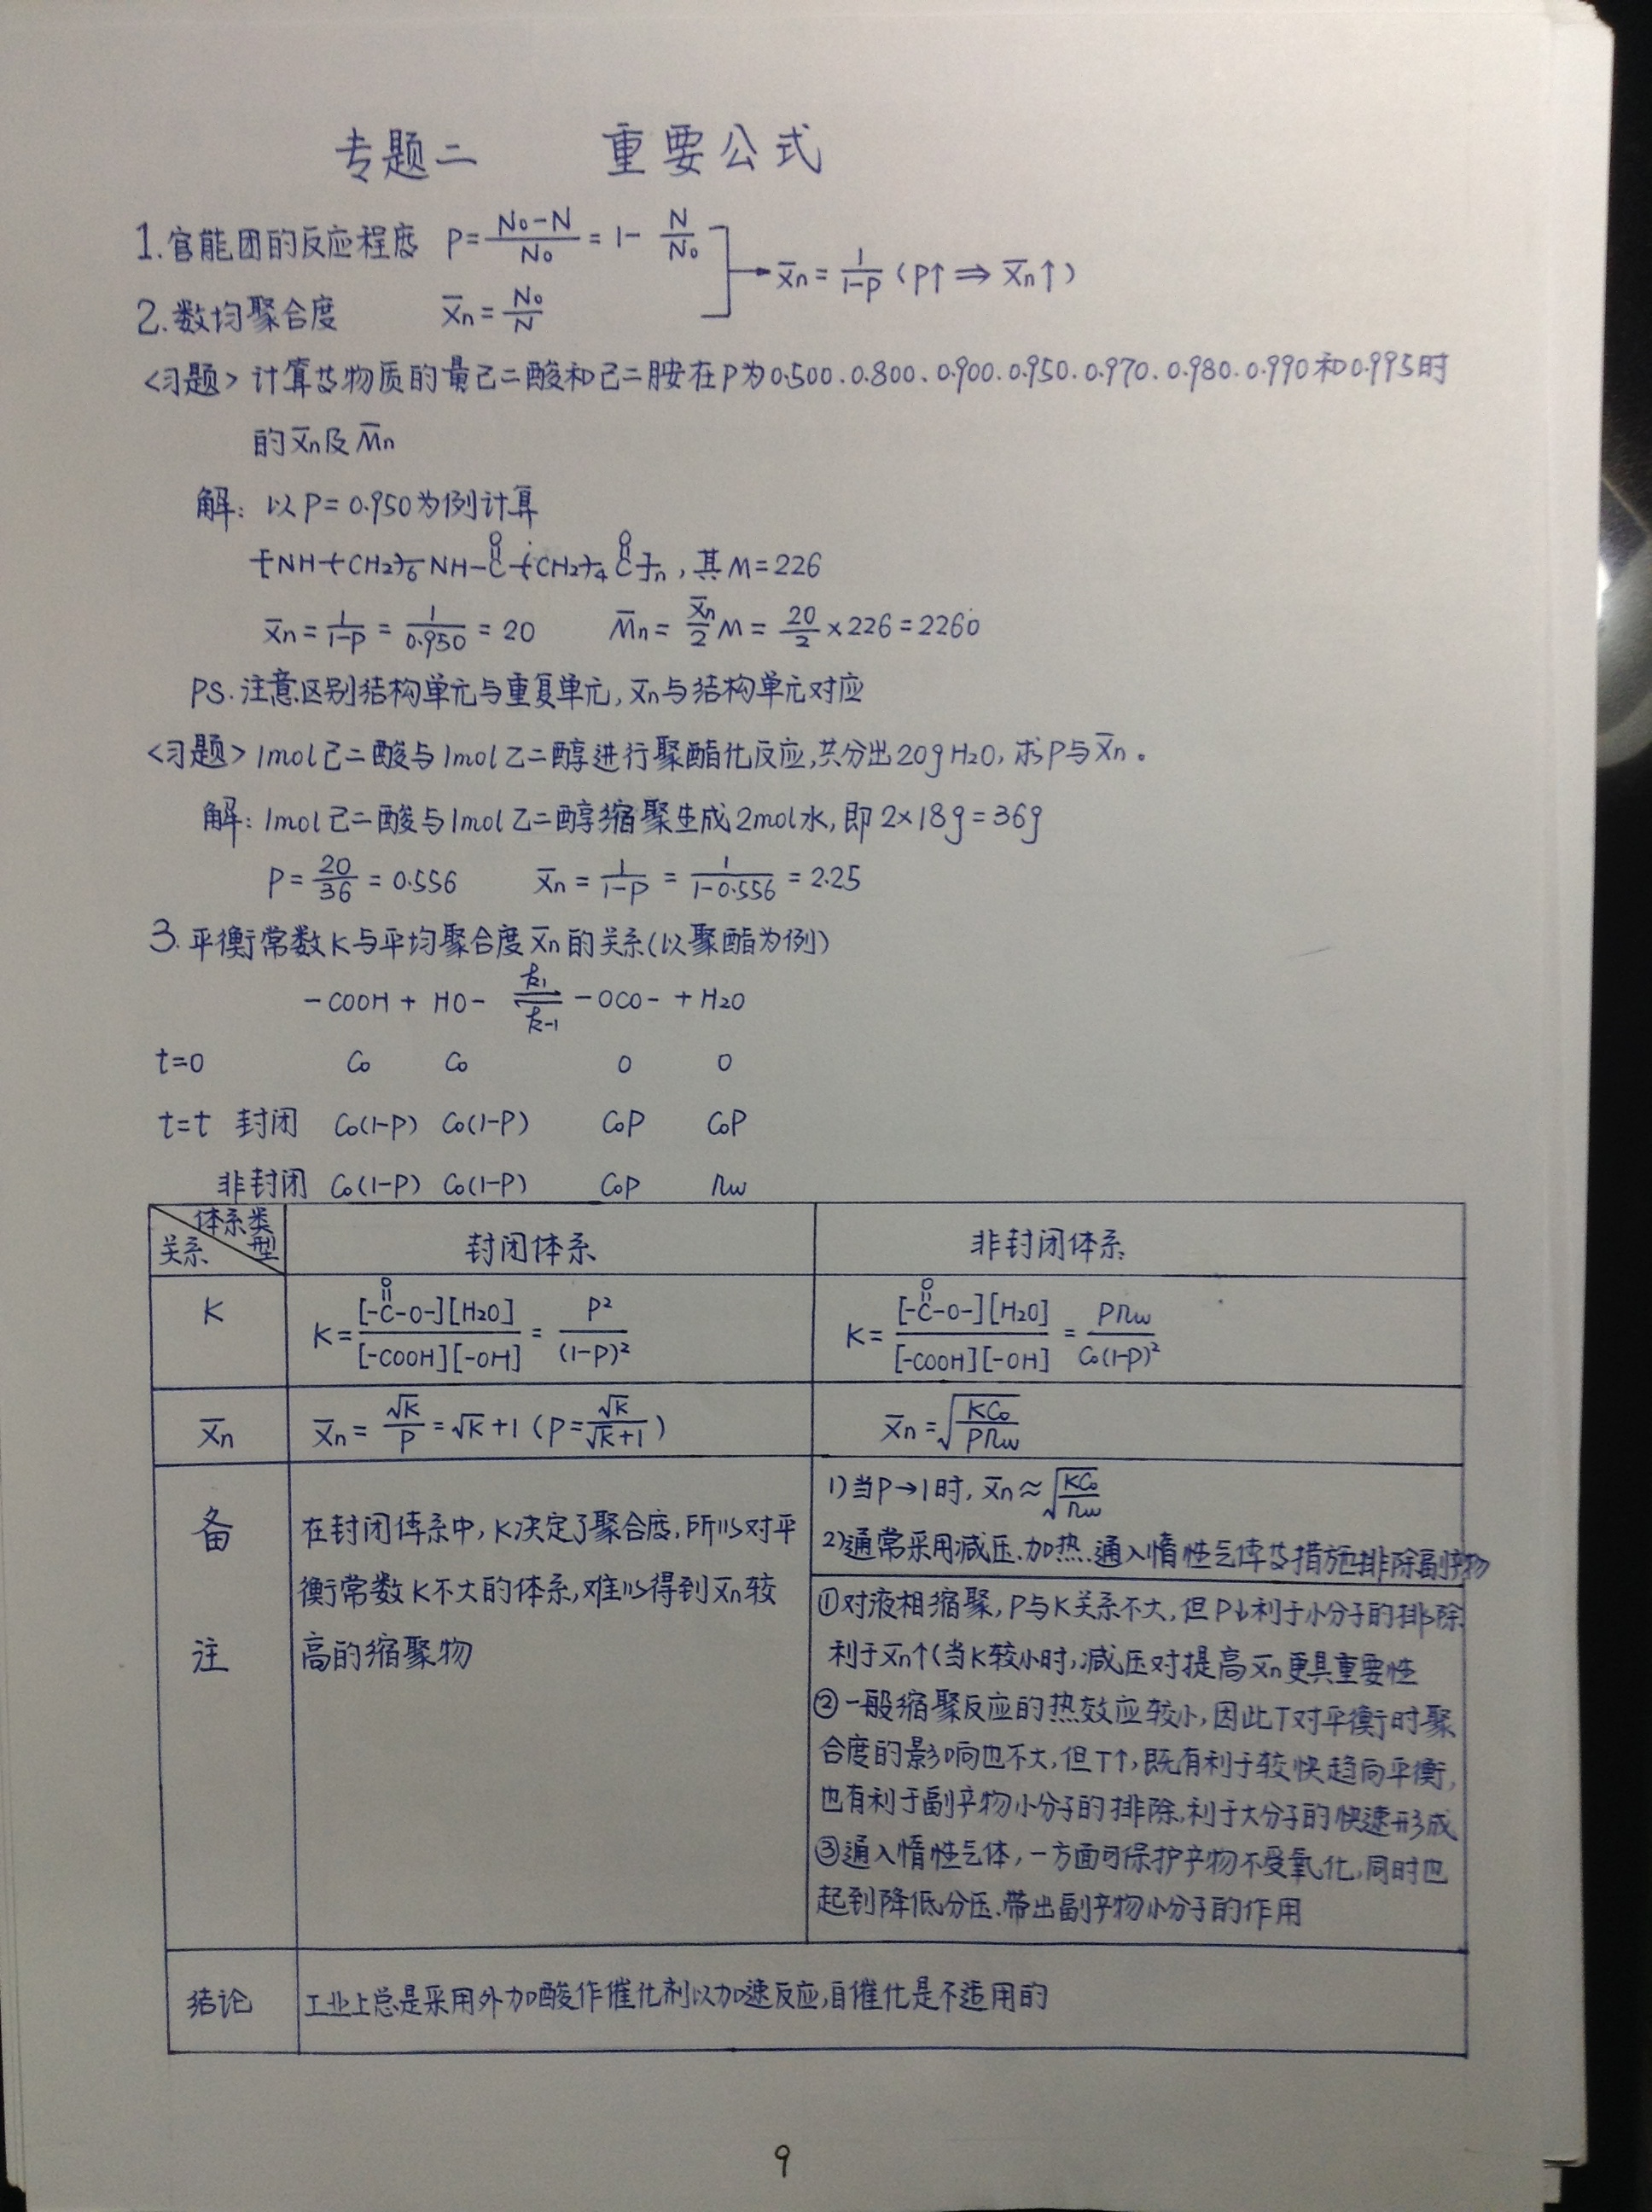 专题二 重要公式
1.官能团的反应程度 P=\frac{N₀-N}{N₀}=1-\frac{N}{N₀}
→ X̄n=\frac{1}{1-P}(P↑⇒X̄n↑)
2.数均聚合度 X̄n=\frac{N₀}{N}
<习题>计算等物质的量己二酸和己二胺在P为0.500、0.800、0.900、0.950、0.970、0.980、0.990和0.995时
的X̄n及M̄n
解:以P=0.950为例计算
-[NH-(CH₂)₆-NH-C(=O)-(CH₂)₄-C(=O)]-n,其M=226
X̄n=\frac{1}{1-P}=\frac{1}{0.950}=20 M̄n=\frac{X̄n}{2}M=\frac{20}{2}×226=2260
PS.注意区别结构单元与重复单元,X̄n与结构单元对应
<习题>1mol己二酸与1mol乙二醇进行聚酯化反应,共分出20gH₂O,求P与X̄n。
解:1mol己二酸与1mol乙二醇缩聚生成2mol水,即2×18g=36g
P=\frac{20}{36}=0.556 X̄n=\frac{1}{1-P}=\frac{1}{1-0.556}=2.25
3.平衡常数K与平均聚合度X̄n的关系(以聚酯为例)
-COOH + HO- ⇌(k₁/k₋₁) -OCO- + H₂O
t=0 C₀ C₀ 0 0
t=t 封闭 C₀(1-P) C₀(1-P) C₀P C₀P
非封闭 C₀(1-P) C₀(1-P) C₀P nw
体系类型
关系
封闭体系 非封闭体系
K
K=\frac{[-C(=O)-O-][H₂O]}{[-COOH][-OH]}=\frac{P²}{(1-P)²}
K=\frac{[-C(=O)-O-][H₂O]}{[-COOH][-OH]}=\frac{Pnw}{C₀(1-P)²}
X̄n
X̄n=\frac{√K}{P}=√K+1(P=\frac{√K}{√K+1})
X̄n=√\frac{KC₀}{Pnw}
备注
在封闭体系中,K决定了聚合度,所以对平
衡常数K不大的体系,难以得到X̄n较
高的缩聚物
1)当P→1时,X̄n≈√\frac{KC₀}{nw}
2)通常采用减压.加热.通入惰性气体等措施排除副产物
①对液相缩聚,P与K关系不大,但P↓利于小分子的排除
利于X̄n↑(当K较小时,减压对提高X̄n更具重要性
②一般缩聚反应的热效应较小,因此T对平衡时聚
合度的影响也不大,但T↑,既有利于较快趋向平衡,
也有利于副产物小分子的排除,利于大分子的快速形成
③通入惰性气体,一方面可保护产物不受氧化,同时也
起到降低分压.带出副产物小分子的作用
结论
工业上总是采用外加酸作催化剂以加速反应,自催化是不适用的
9